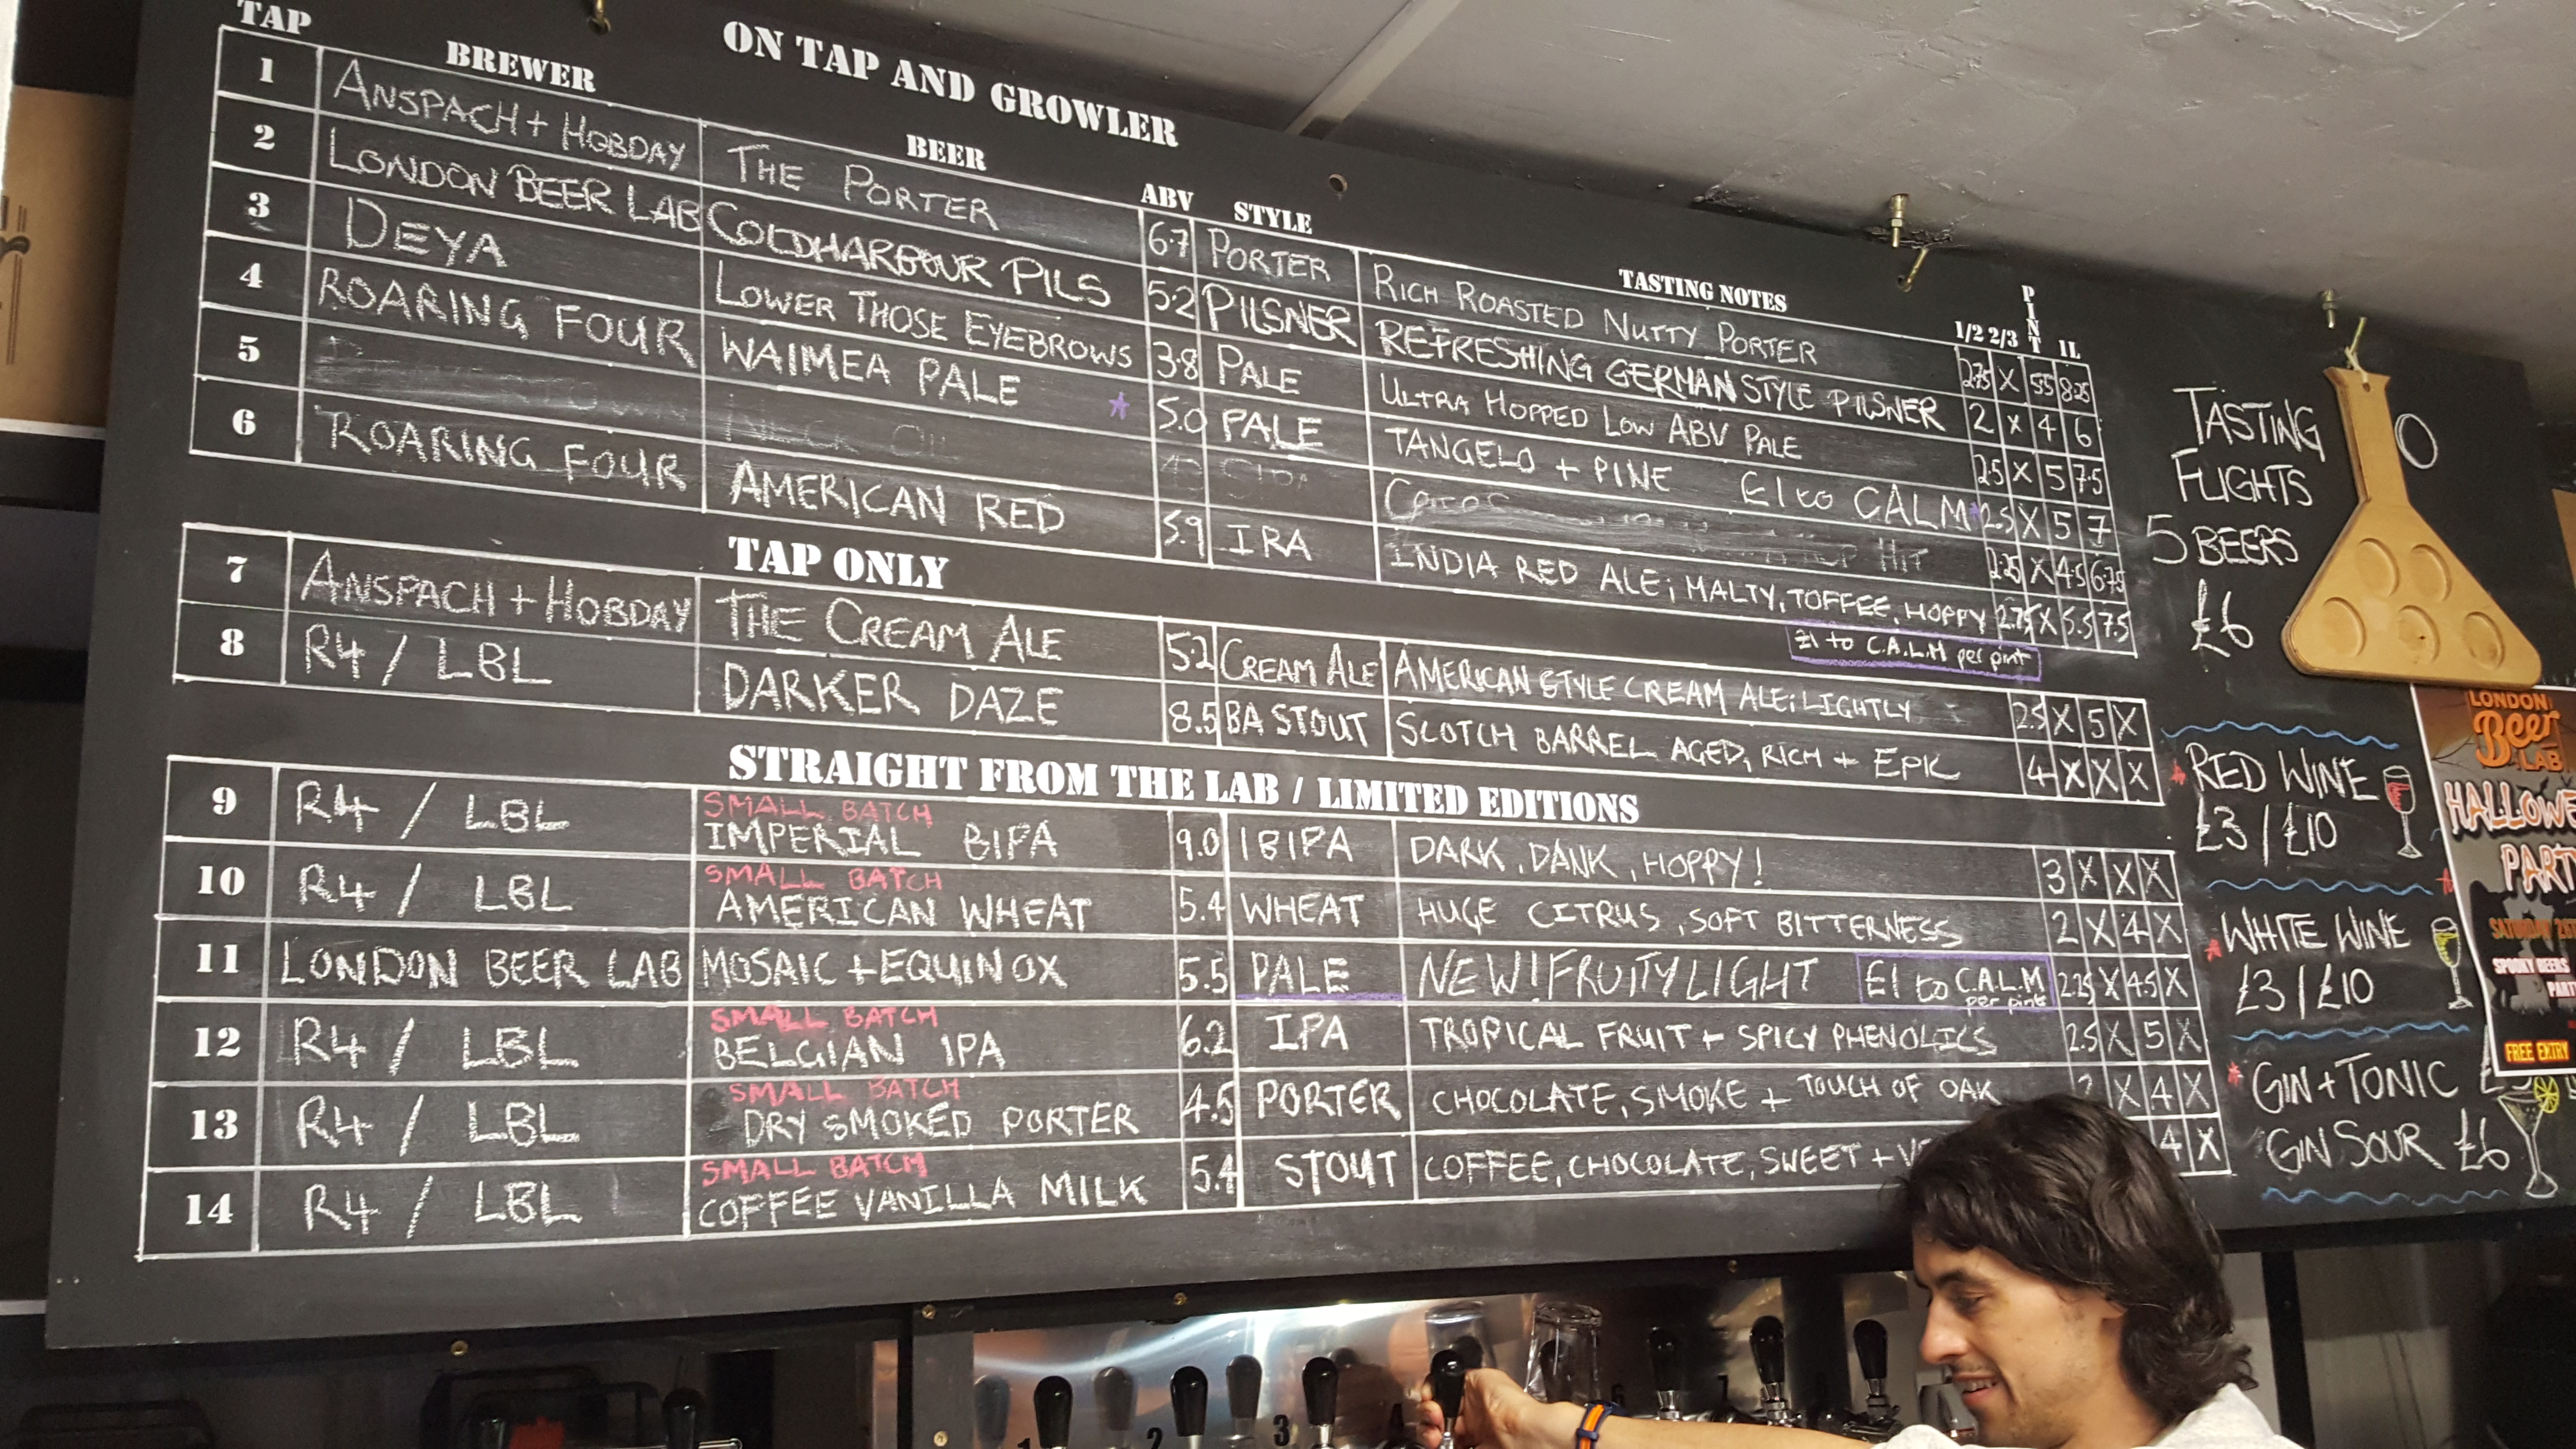 ON TAP AND GROWLER
TAP BREWER BEER ABV STYLE TASTING NOTES 1/2 2/3 PINT 1L
1 ANSPACH + HOBDAY THE PORTER 6.7 PORTER RICH ROASTED NUTTY PORTER 2.75 X 5.5 8.25
2 LONDON BEER LAB COLDHARBOUR PILS 5.2 PILSNER REFRESHING GERMAN STYLE PILSNER 2 X 4 6
3 DEYA LOWER THOSE EYEBROWS 3.8 PALE ULTRA HOPPED LOW ABV PALE 2.5 X 5 7.5
4 ROARING FOUR WAIMEA PALE 5.0 PALE TANGELO + PINE £1 to CALM 2.5 X 5 7
5 NECK HIT 2.25 X 4.5 6.75
6 ROARING FOUR AMERICAN RED 5.9 IRA INDIA RED ALE; MALTY, TOFFEE, HOPPY 2.75 X 5.5 7.5
£1 to C.A.L.M per pint
TAP ONLY
7 ANSPACH + HOBDAY THE CREAM ALE 5.2 CREAM ALE AMERICAN STYLE CREAM ALE; LIGHTLY 2.5 X 5 X
8 R4 / LBL DARKER DAZE 8.5 BA STOUT SCOTCH BARREL AGED, RICH + EPIC 4 X X X
STRAIGHT FROM THE LAB / LIMITED EDITIONS
SMALL BATCH
9 R4 / LBL IMPERIAL BIPA 9.0 IBIPA DARK, DANK, HOPPY! 3 X X X
SMALL BATCH
10 R4 / LBL AMERICAN WHEAT 5.4 WHEAT HUGE CITRUS, SOFT BITTERNESS 2 X 4 X
11 LONDON BEER LAB MOSAIC + EQUINOX 5.5 PALE NEW! FRUITY LIGHT £1 to C.A.L.M 2.25 X 4.5 X
per pint
SMALL BATCH
12 R4 / LBL BELGIAN IPA 6.2 IPA TROPICAL FRUIT + SPICY PHENOLICS 2.5 X 5 X
SMALL BATCH
13 R4 / LBL DRY SMOKED PORTER 4.5 PORTER CHOCOLATE, SMOKE + TOUCH OF OAK 2 X 4 X
SMALL BATCH
14 R4 / LBL COFFEE VANILLA MILK 5.4 STOUT COFFEE, CHOCOLATE, SWEET + 4 X
TASTING
FLIGHTS
5 BEERS
£6
RED WINE
£3 / £10
WHITE WINE
£3 / £10
GIN + TONIC
GIN SOUR £6
LONDON
Beer
LAB
PARTY
SATURDAY
SPOOKY BEERS
FREE ENTRY
1 2 3 4